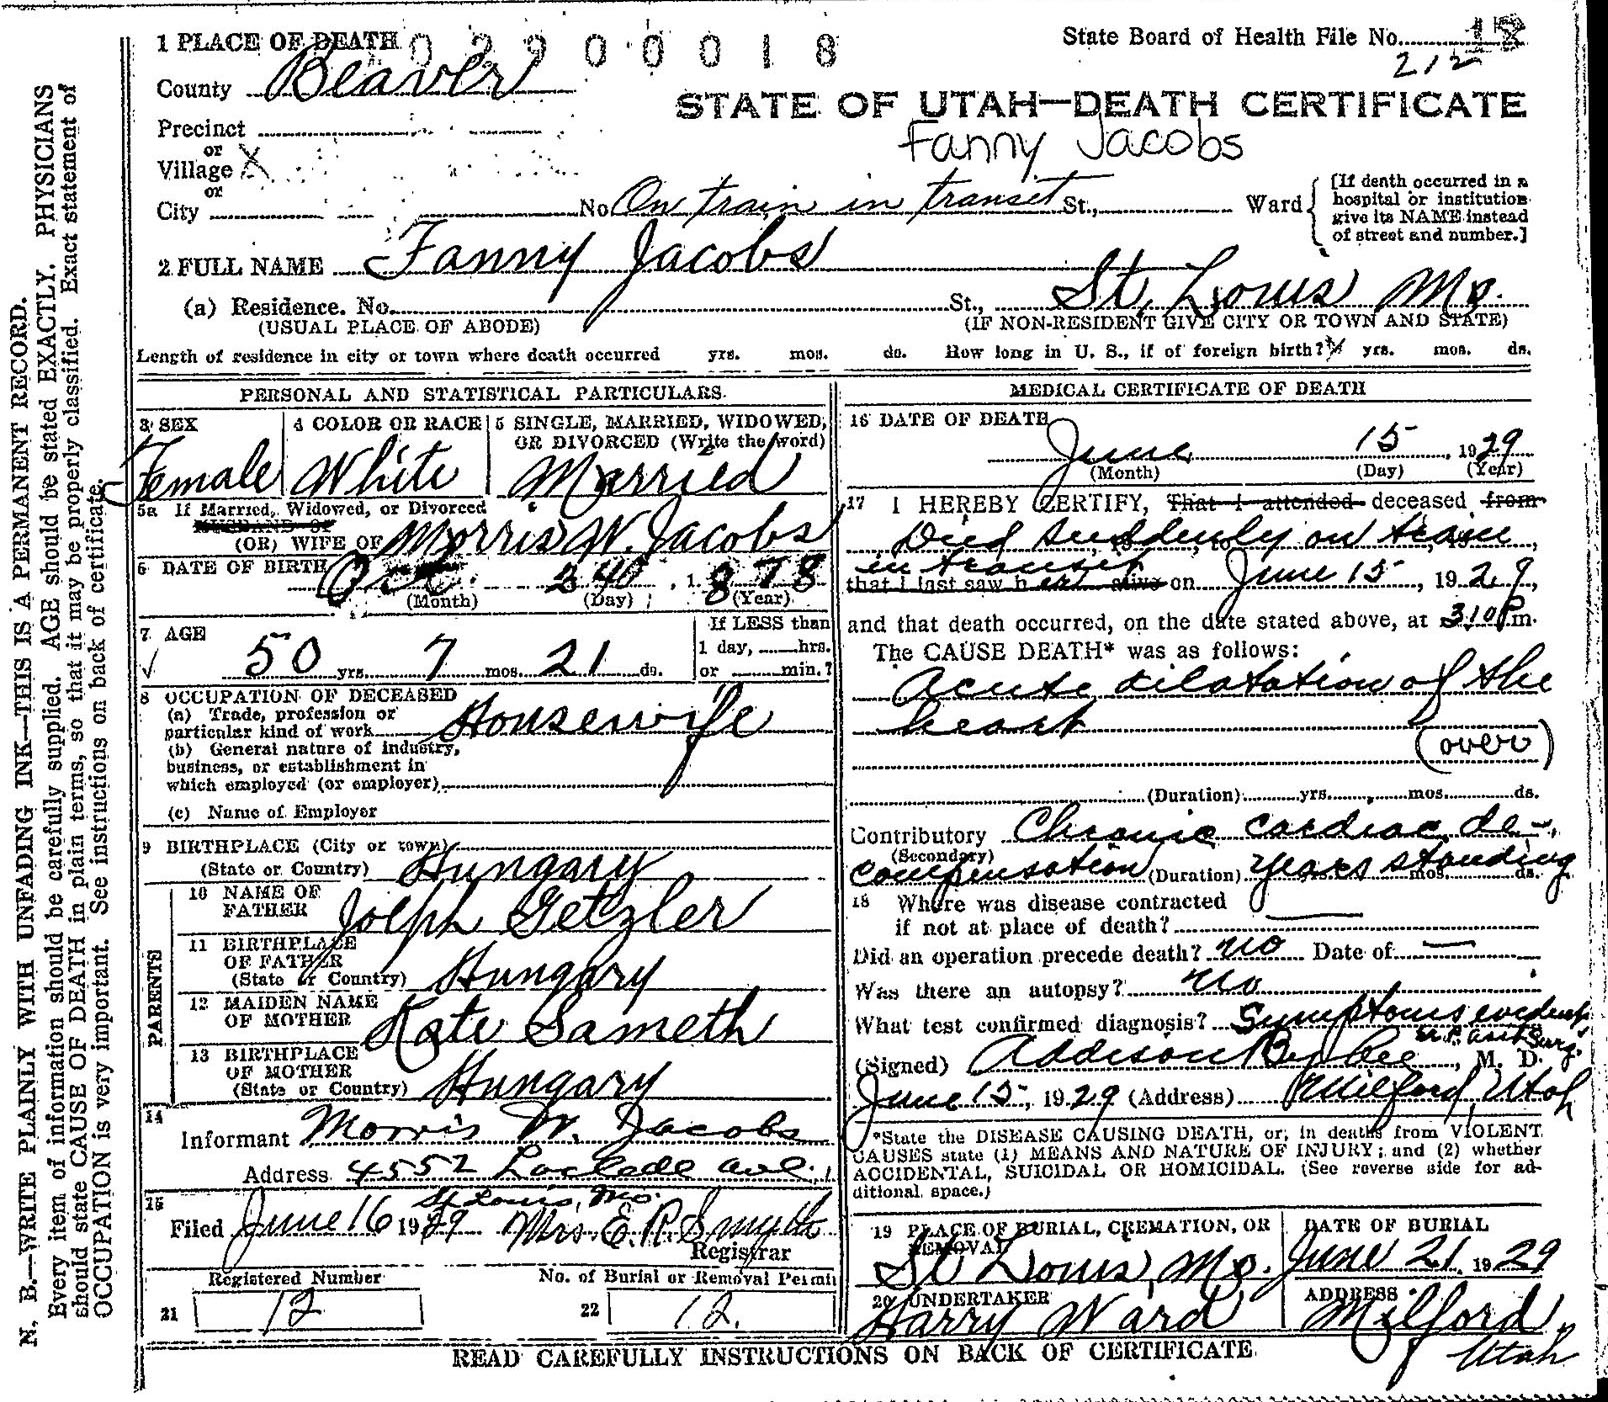 N. B.—WRITE PLAINLY WITH UNFADING INK—THIS IS A PERMANENT RECORD.
Every item of information should be carefully supplied. AGE should be stated EXACTLY. PHYSICIANS
should state CAUSE OF DEATH in plain terms, so that it may be properly classified. Exact statement of
OCCUPATION is very important. See instructions on back of certificate.
1 PLACE OF DEATH
02900018
State Board of Health File No.
212
County Beaver
STATE OF UTAH—DEATH CERTIFICATE
Fanny Jacobs
Precinct
or
Village X
or
City No On train in transit St., Ward
[If death occurred in a
hospital or institution
give its NAME instead
of street and number.]
2 FULL NAME Fanny Jacobs
(a) Residence. No. St., St. Louis Mo.
(USUAL PLACE OF ABODE) (IF NON-RESIDENT GIVE CITY OR TOWN AND STATE)
Length of residence in city or town where death occurred yrs. mos. ds. How long in U. S., if of foreign birth? yrs. mos. ds.
PERSONAL AND STATISTICAL PARTICULARS
3 SEX
Female
4 COLOR OR RACE
White
5 SINGLE, MARRIED, WIDOWED,
OR DIVORCED (Write the word)
Married
5a If Married, Widowed, or Divorced
HUSBAND OF
(OR) WIFE OF Morris W. Jacobs
6 DATE OF BIRTH Oct 1878
(Month) (Day) (Year)
7 AGE
50 yrs. 7 mos. 21 ds.
If LESS than
1 day, hrs.
or min.?
8 OCCUPATION OF DECEASED
(a) Trade, profession or
particular kind of work Housewife
(b) General nature of industry,
business, or establishment in
which employed (or employer)
(c) Name of Employer
9 BIRTHPLACE (City or town)
(State or Country) Hungary
PARENTS
10 NAME OF
FATHER Joseph Getzler
11 BIRTHPLACE
OF FATHER
(State or Country) Hungary
12 MAIDEN NAME
OF MOTHER Kate Sameth
13 BIRTHPLACE
OF MOTHER
(State or Country) Hungary
14
Informant Morris W. Jacobs
Address 4552 Laclede Ave.
St Louis, Mo.
15
Filed June 16 1929 Mrs. E. R. Smyth
Registrar
Registered Number
21 12
No. of Burial or Removal Permit
22 12.
MEDICAL CERTIFICATE OF DEATH
16 DATE OF DEATH
June 15, 1929
(Month) (Day) (Year)
17 I HEREBY CERTIFY, That I attended deceased from
Died suddenly on train
in transit
that I last saw h er alive on June 15, 1929,
and that death occurred, on the date stated above, at 310 P m.
The CAUSE DEATH* was as follows:
Acute dilatation of the
heart
(over)
(Duration) yrs. mos. ds.
Contributory Chronic cardiac de-
(Secondary)
compensation (Duration) years standing mos. ds.
18 Where was disease contracted
if not at place of death?
Did an operation precede death? no Date of —
Was there an autopsy? no
What test confirmed diagnosis? Symptoms evident
(Signed) Addison Bybee U.P. Asst Surg., M. D.
June 15, 1929 (Address) Milford, Utah
*State the DISEASE CAUSING DEATH, or, in deaths from VIOLENT
CAUSES state (1) MEANS AND NATURE OF INJURY; and (2) whether
ACCIDENTAL, SUICIDAL OR HOMICIDAL. (See reverse side for ad-
ditional space.)
19 PLACE OF BURIAL, CREMATION, OR
REMOVAL
St Louis, Mo.
DATE OF BURIAL
June 21, 1929
20 UNDERTAKER
Harry Ward
ADDRESS
Milford,
Utah
READ CAREFULLY INSTRUCTIONS ON BACK OF CERTIFICATE